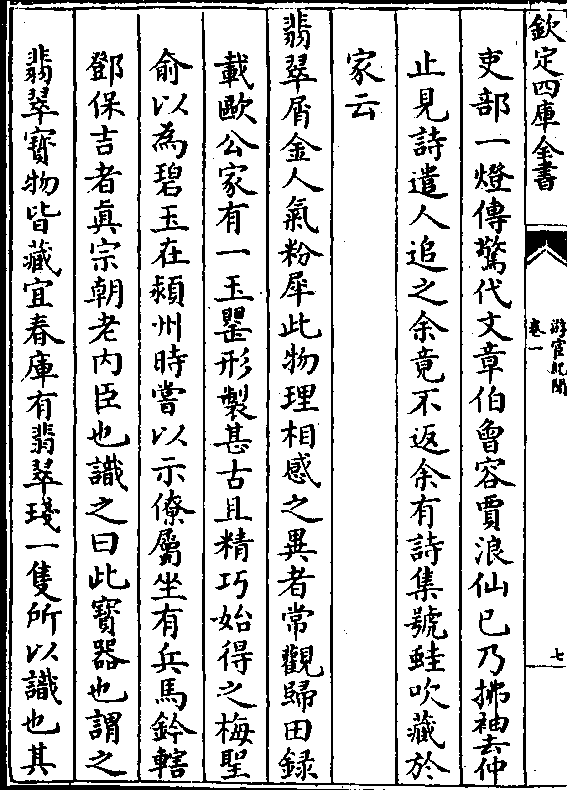 欽定四庫全書
游宦紀聞
卷一
七
吏部一燈傳驚代文章伯曾容賈浪仙已乃拂袖去仲
止見詩遣人追之余竟不返余有詩集號蛙吹藏於
家云
翡翠屑金人氣粉犀此物理相感之異者常觀歸田録
載歐公家有一玉罌形製甚古且精巧始得之梅聖
俞以為碧玉在潁州時嘗以示僚屬坐有兵馬鈐轄
鄧保吉者真宗朝老内臣也識之曰此寳器也謂之
翡翠寳物皆藏宜春庫有翡翠琖一隻所以識也其